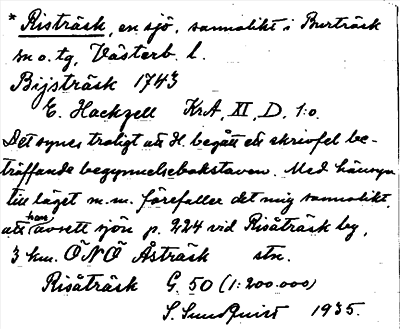 * Risträsk, en sjö, sannolikt i Burträsk
sn o. tg, Västerb. l.
Bijsträsk 1743
E. Hackzell KrA, XI, D, 1:o.
Det synes troligt att H. begått ett skrivfel be-
träffande begynnelsebokstaven. Med hänsyn
till läget m.m. förefaller det mig sannolikt,
att hans avsett sjön p. 224 vid Risåträsk by,
3 km. ÖNÖ Åsträsk stn.
Risåträsk G. 50 (1:200.000)
S. Sundquist 1935.